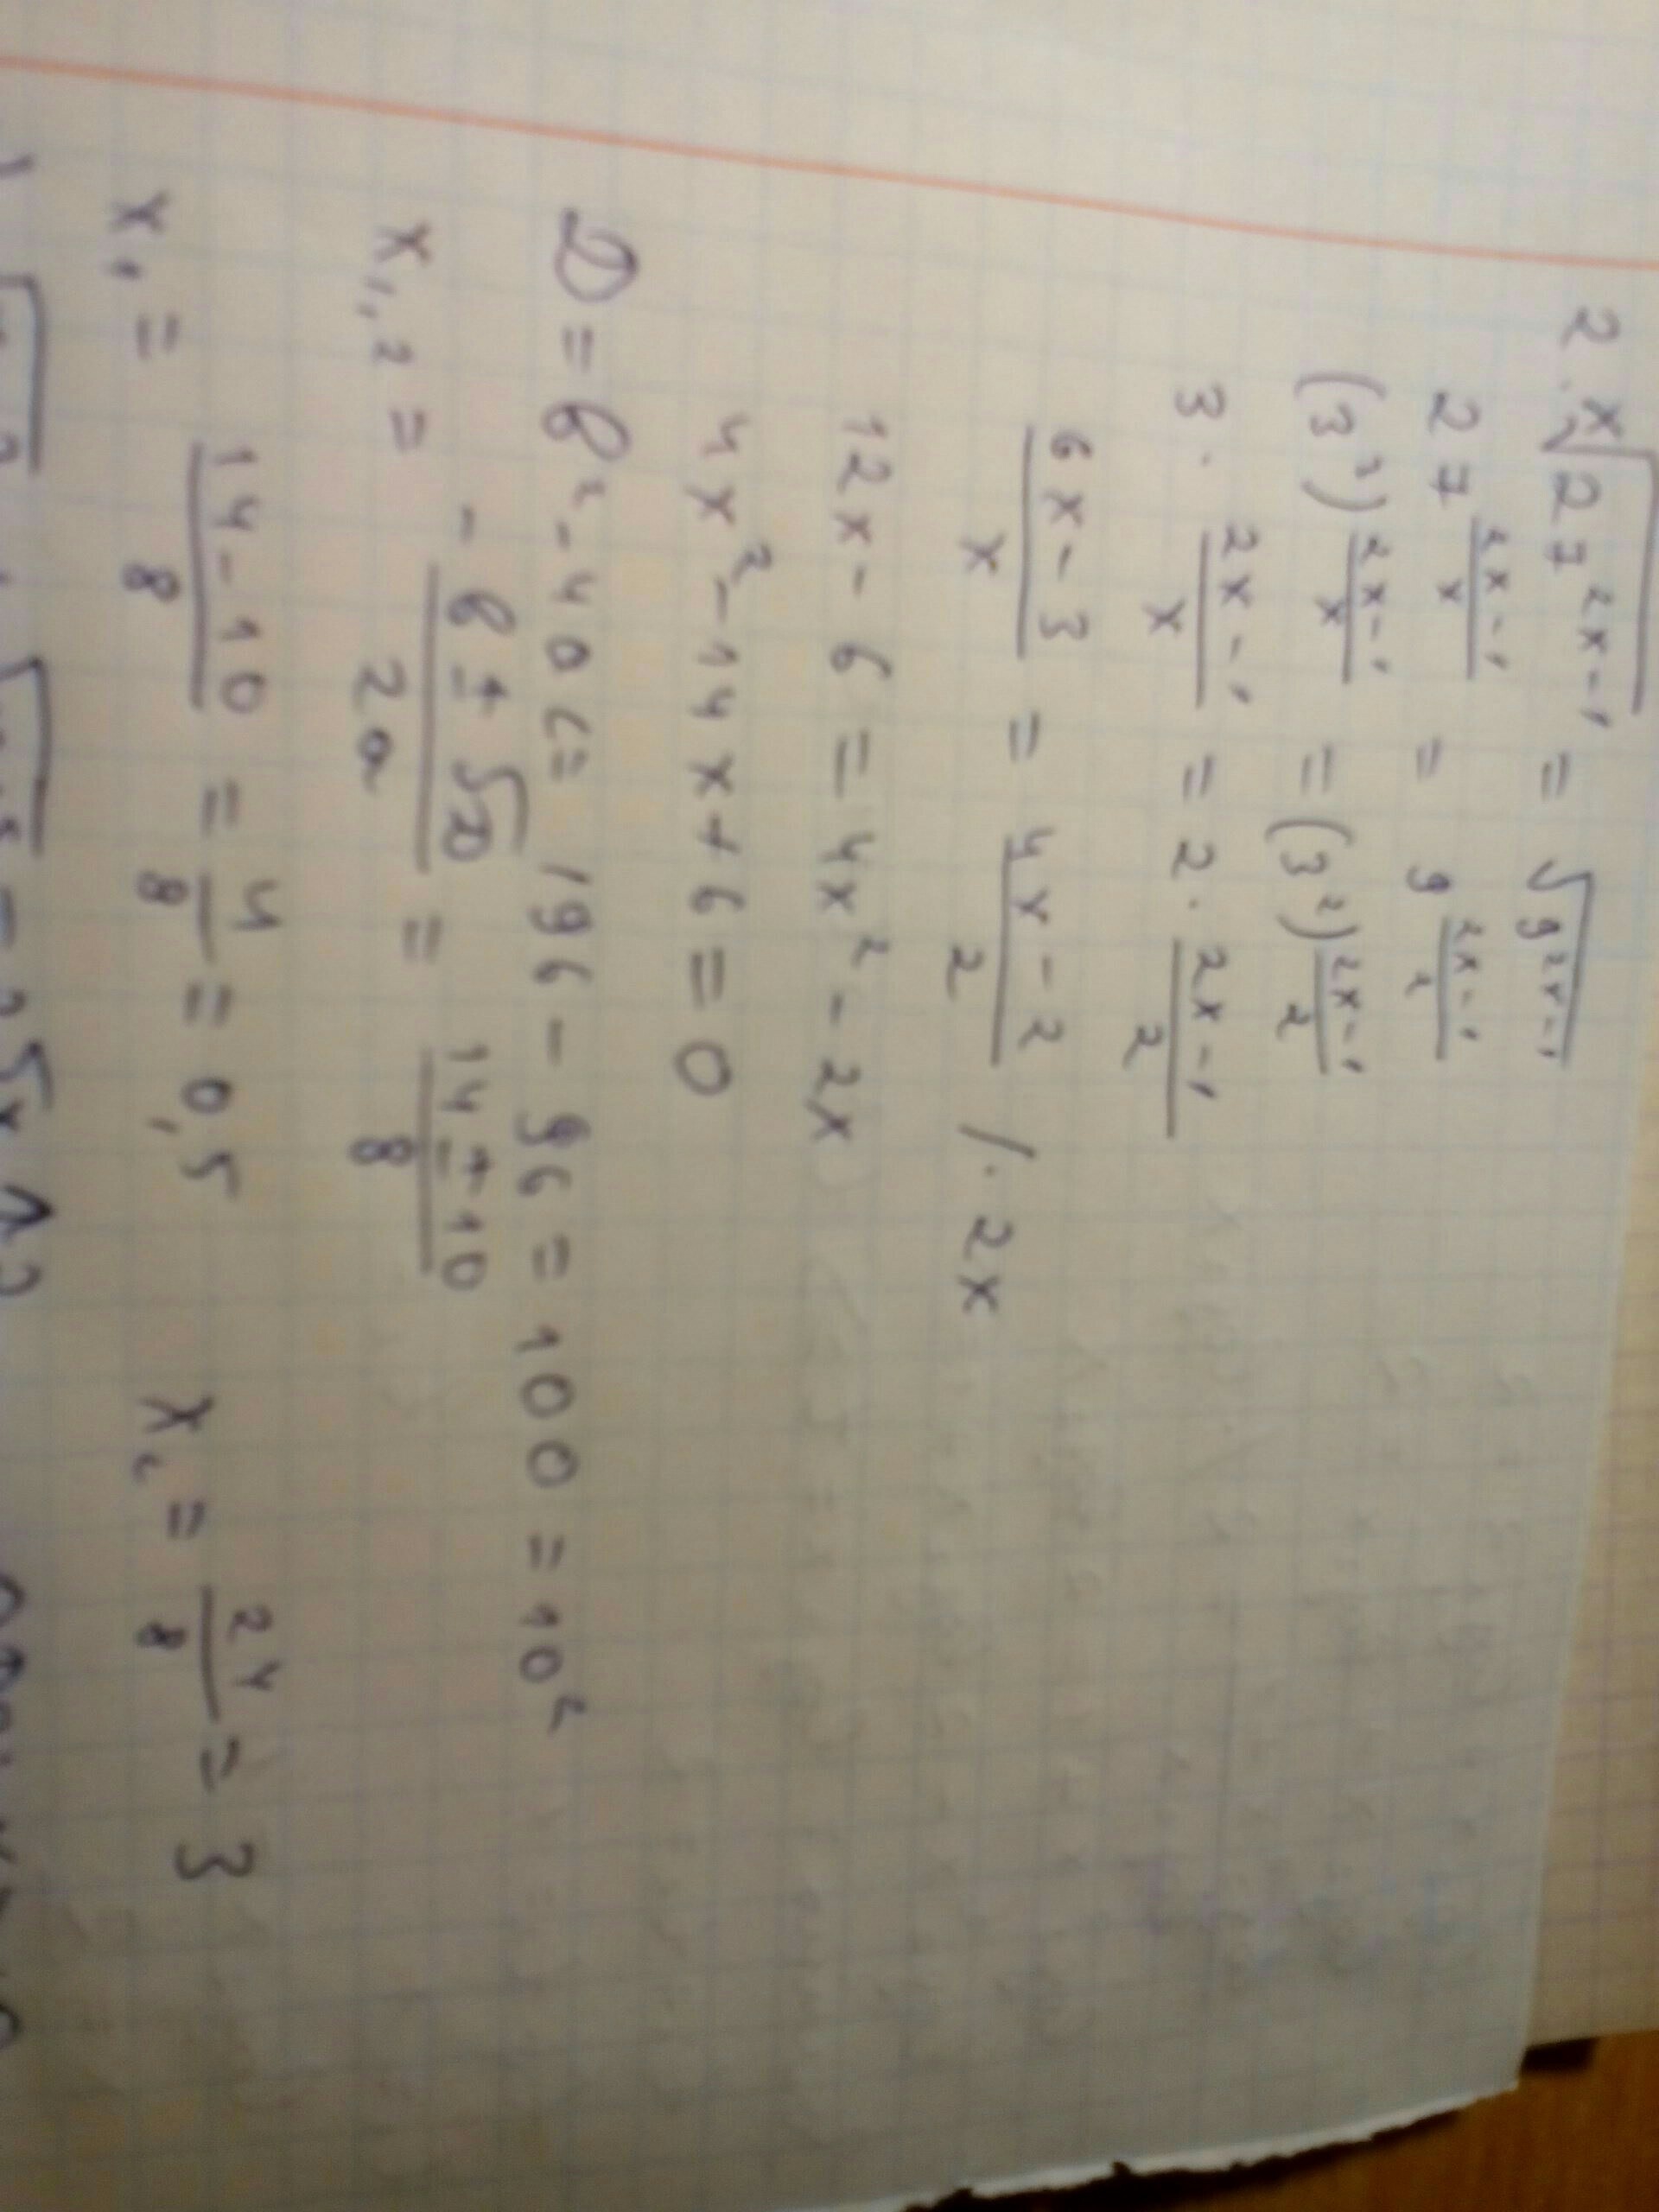 2. ˣ√(27^(2x-1)) = √(9^(2x-1))
27^((2x-1)/x) = 9^((2x-1)/2)
(3³)^((2x-1)/x) = (3²)^((2x-1)/2)
3 · (2x-1)/x = 2 · (2x-1)/2
(6x-3)/x = (4x-2)/2 /· 2x
12x - 6 = 4x² - 2x
4x² - 14x + 6 = 0
D = b² - 4ac = 196 - 96 = 100 = 10²
x₁,₂ = (-b ± √D)/2a = (14 ± 10)/8
x₁ = (14-10)/8 = 4/8 = 0,5 x₂ = 24/8 = 3